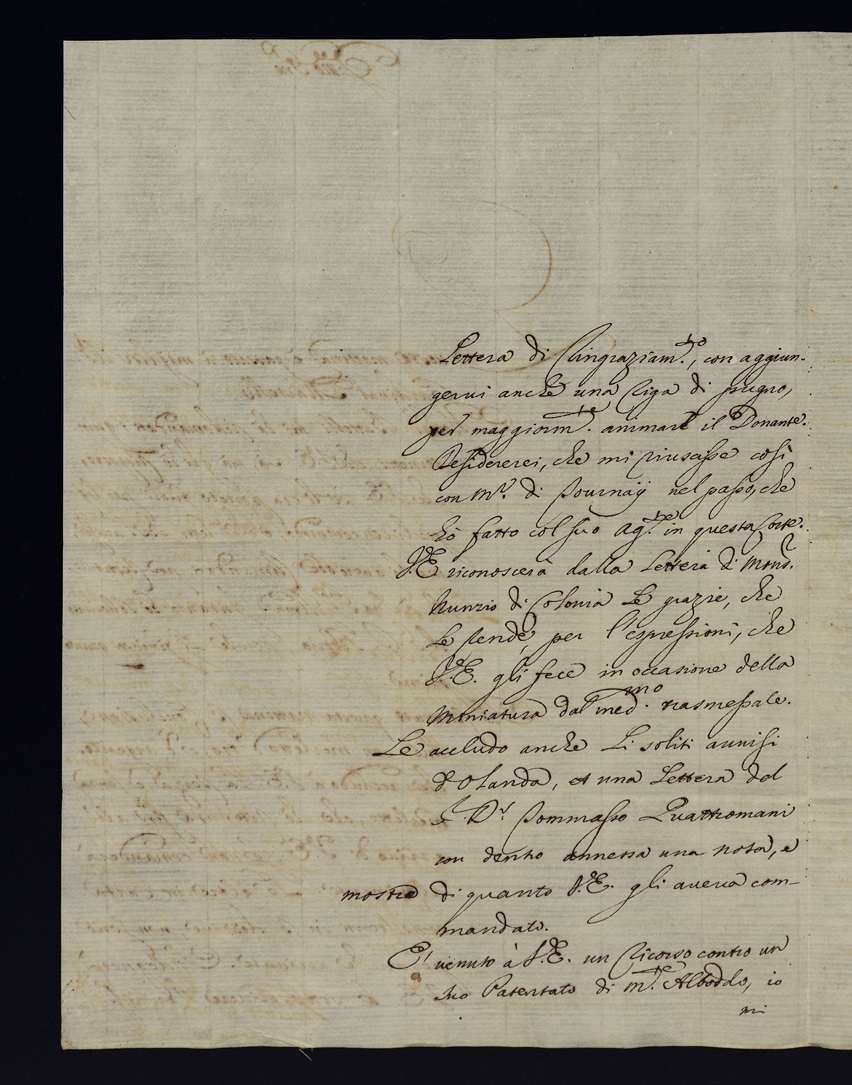 Lettera di Ringraziam.to, con aggiun-
gervi anche una riga di pugno,
per maggiorm.te animare il Donante.
Desidererei, che mi riuscisse così
con M.r di Tournay nel passo, che
hò fatto col suo Ag.te in questa Corte.
V.E. riconoscerà dalla Lettera di Mons.r
Nunzio di Colonia Le grazie, che
Le rende, per l'espressioni, che
V.E. gli fece in occasione della
Miniatura dal med.mo trasmessale.
Le accludo anche Li soliti avvisi
d'Olanda, et una Lettera del
S.r D.r Tommasso Quattromani
con dentro annessa una nota, e
mostre di quanto V.E. gli aveva com-
mandato.
E' venuto à V.E. un Ricorso contro un
suo Patentato di M.te Alboddo, io
mi